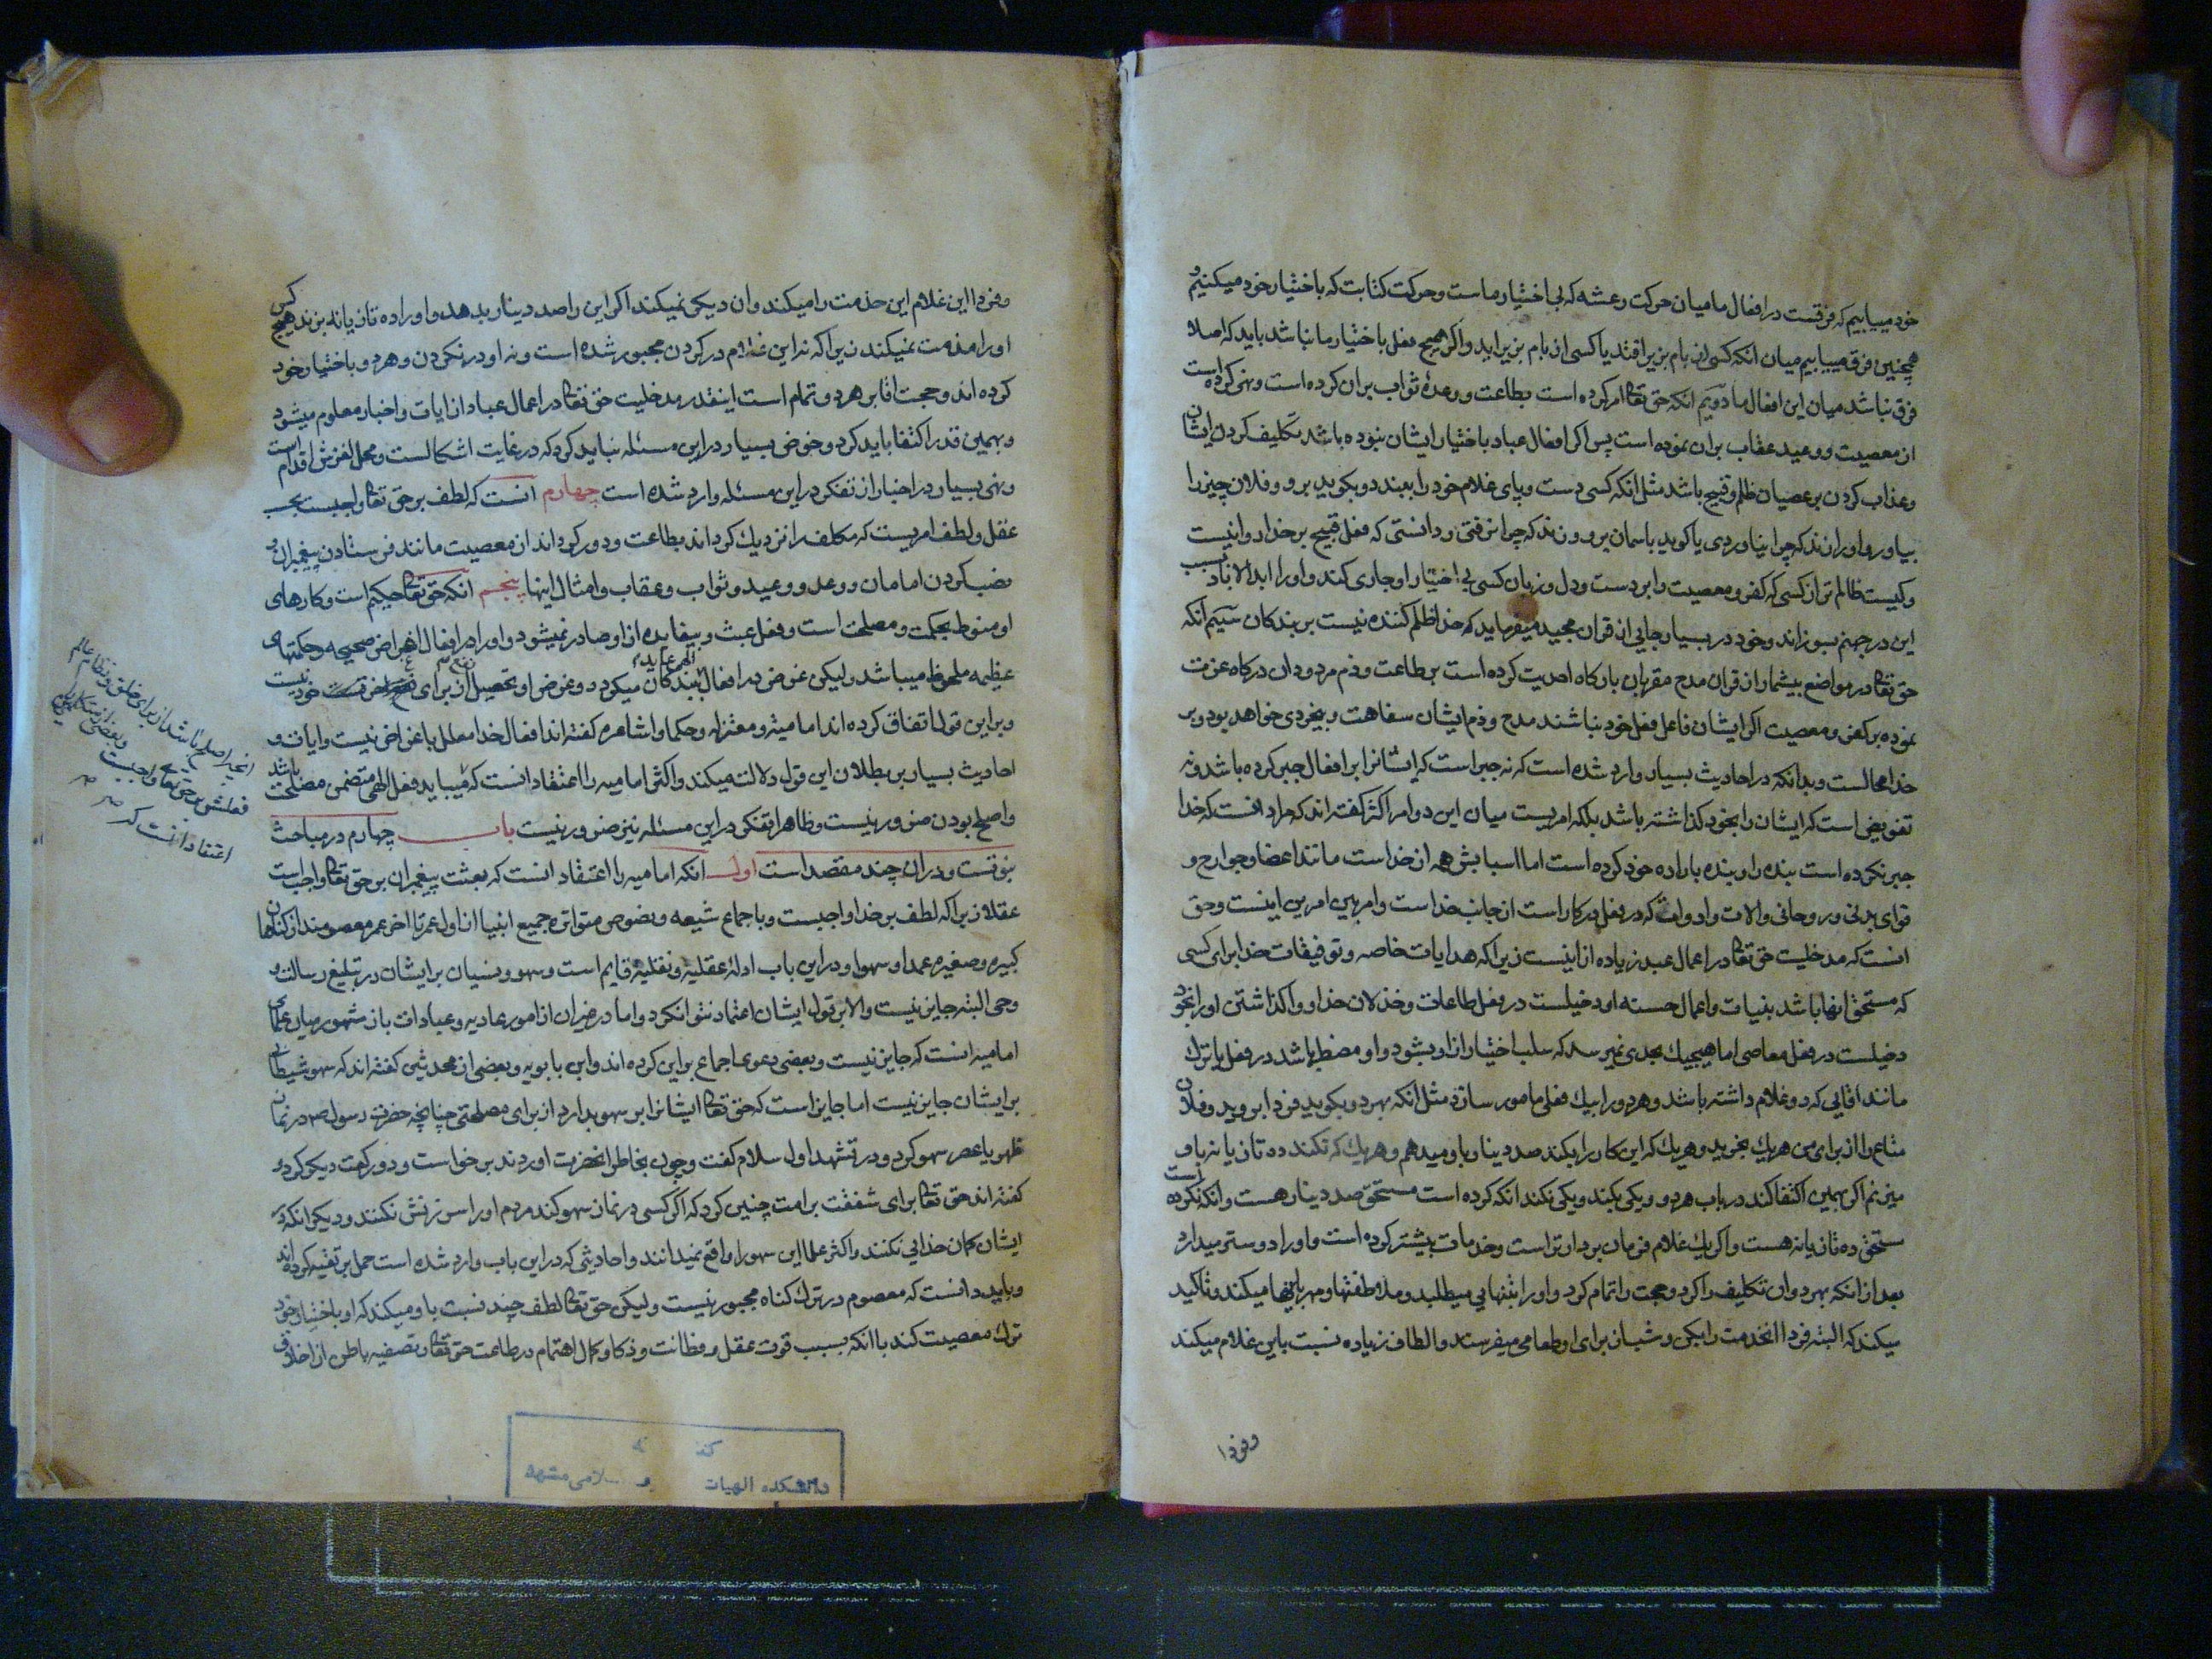 خود مییابیم که فرقست در افعال ما میان حرکت رعشه که بی اختیار ماست و حرکت کتابت که باختیار خود میکنیم و
همچنین فرق مییابیم میان انکه کسی از بام بزیر افتد یا کسی از بام بزیر اید و اکر هیچ فعل باختیار ما نباشد باید که اصلا
فرق نباشد میان این افعال ما دویم انکه حق تعالی امر کرده است بطاعت و وعدهٔ ثواب بران کرده است و نهی کرده است
از معصیت و وعید عقاب بران نموده است پس اکر افعال عباد باختیار ایشان نبوده باشد تکلیف کردن ایشان
و عذاب کردن بر عصیان ظلم و قبیح باشد مثل انکه کسی دست و پای غلام خود را ببندد و بکوید برو و فلان چیز را
بیاور و او را زند که چرا نیاوردی یا کوید باسمان برو و زند که چرا نرفتی و دانستی که فعل قبیح بر خدا روا نیست
و کیست ظالم تر از کسی که کفر و معصیت را بر دست و دل و زبان کسی بی اختیار او جاری کند و او را ابد الاباد بسبب
این در جهنم بسوزاند و خود در بسیار جایی از قران مجید میفرماید که خدا ظلم کننده نیست بر بندکان سیم انکه
حق تعالی در مواضع بیشمار از قران مدح مقربان بارکاه احدیت کرده است بر طاعت و ذم مردودان درکاه عزت
نموده بر کفر و معصیت اکر ایشان فاعل فعل خود نباشند مدح و ذم ایشان سفاهت و بیخردی خواهد بود و بر
خدا محالست و بدانکه در احادیث بسیار وارد شده است که نه جبر است که ایشانرا بر افعال جبر کرده باشد و نه
تفویض است که ایشان را بخود کذاشته باشد بلکه امریست میان این دو امر اکثر کفته اند که مراد انست که خدا
جبر نکرده است بنده را و بنده باراده خود کرده است اما اسبابش همه از خداست مانند اعضا و جوارح و
قوای بدنی و روحانی و الات و ادوات که در فعل در کار است از جانب خداست و امر بین امرین اینست و حق
انست که مدخلیت حق تعالی در اعمال عبد زیاده از اینست زیرا که هدایات خاصه و توفیقات خدا برای کسی
که مستحق انها باشد بنیات و اعمال حسنه او دخیلست در فعل طاعات و خذلان خدا و واکذاشتن او را بخود
دخیلست در فعل معاصی اما هیچیک بحدی نمیرسد که سلب اختیار از او بشود و او مضطر باشد در فعل یا ترک
مانند اقایی که دو غلام داشته باشد و هر دو را بیک فعلی مامور سازد مثل انکه بهر دو بکوید فردا بروید و فلان
متاع را از برای من هر یک بخرید و هر یک که این کار را بکند صد دینار باو میدهم و هر یک که نکند ده تازیانه باو
میزنم اکر بهمین اکتفا کند در باب هر دو و یکی بکند و یکی نکند انکه کرده است مستحق صد دینار هست و انکه نکرده است
مستحق ده تازیانه هست و اکر یک غلام فرمان بردارتر است و خدمات بیشتر کرده است و او را دوستر میدارد
بعد از انکه بهر دو ان تکلیف را کرد و حجت را تمام کرد و او را بتنهایی میطلبد و ملاطفتها و مهربانیها میکند و تاکید
میکند که البته فردا انخدمت را بکن و شب از برای او طعامی میفرستد و الطاف زیاده نسبت باین غلام میکند
و فردا
و فردا این غلام این خدمت را میکند و ان دیکری نمیکند اکر این را صد دینار بدهد و او را ده تازیانه بزند هیچ کس
او را مذمت نمیکند زیرا که نه این غلام در کردن مجبور شده است و نه او در نکردن و هر دو باختیار خود
کرده اند و حجت اقا بر هر دو تمام است اینقدر مدخلیت حق تعالی در اعمال عباد از ایات و اخبار معلوم میشود
و بهمین قدر اکتفا باید کرد و خوض بسیار در این مسئله نباید کرد که در غایت اشکالست و محل لغزش اقدام است
و نهی بسیار در اخبار از تفکر در این مسئله وارد شده است چهارم انست که لطف بر حق تعالی واجبست بحسب
عقل و لطف امریست که مکلف را نزدیک کرداند بطاعت و دور کرداند از معصیت مانند فرستادن پیغمبران و
نصب کردن امامان و وعد و وعید و ثواب و عقاب و امثال اینها پنجم انکه حق تعالی حکیم است و کارهای
او منوط بحکمت و مصلحت است و فعل عبث و بیفایده از او صادر نمیشود و او را در افعال اغراض صحیحه و حکمتهای
عظیمه ملحوظ میباشد ولیکن غرض در افعال الهی عاید ببندکان میکردد و غرض او تحصیل نفع از برای خود نیست
و بر این قول اتفاق کرده اند امامیه و معتزله و حکما و اشاعره کفته اند افعال خدا معلل باغراض نیست و ایات و
احادیث بسیار بر بطلان این قول دلالت میکند و اکثر امامیه را اعتقاد انست که میباید فعل الهی متضمن مصلحت باشد
و اصلح بودن ضرور نیست و ظاهرا تفکر در این مسئله نیز ضرور نیست باب چهارم در مباحث
نبوتست و دران چند مقصد است اول انکه امامیه را اعتقاد انست که بعثت پیغمبران بر حق تعالی واجبست
عقلا زیرا که لطف بر خدا واجبست و باجماع شیعه و نصوص متواتره جمیع انبیا از اول عمر تا اخر عمر معصومند از کناهان
کبیره و صغیره عمدا و سهوا و در این باب ادلهٔ عقلیه و نقلیه قایم است و سهو و نسیان بر ایشان در تبلیغ رسالت و
وحی البته جایز نیست و الا بر قول ایشان اعتماد نتوانکرد و اما در غیر ان از امور عادیه و عبادات باز مشهور میان علمای
امامیه انست که جایز نیست و بعضی دعوی اجماع بر این کرده اند و ابن بابویه و بعضی از محدثین کفته اند که سهو شیطانی
بر ایشان جایز نیست اما جایز است که حق تعالی ایشانرا بر سهو بدارد از برای مصلحتی چنانچه حضرت رسول ص در نماز
ظهر یا عصر سهو کرد و در تشهد اول سلام کفت و چون بخاطر انحضرت اوردند برخواست و دو رکعت دیکر کرد و
کفته اند حق تعالی برای شفقت بر امت چنین کرد که اکر کسی در نماز سهو کند مردم او را سرزنش نکنند و دیکر انکه در
ایشان کمان خدایی نکنند و اکثر علما این سهو را واقع نمیدانند و احادیثی که در این باب وارد شده است حمل بر تقیه کرده اند
و باید دانست که معصوم در ترک کناه مجبور نیست ولیکن حق تعالی لطف چند نسبت باو میکند که او باختیار خود
ترک معصیت کند با انکه بسبب قوت عقل و فطانت و ذکا و کمال اهتمام در طاعت حق تعالی و تصفیه باطن از اخلاق
انچه اصلح باشد از برای خلق و نظام عالم
فعلش بر حق تعالی واجبست و بعضی از متکلمین
اعتقاد انست که
دانشکده الهیات و اسلامی مشهد